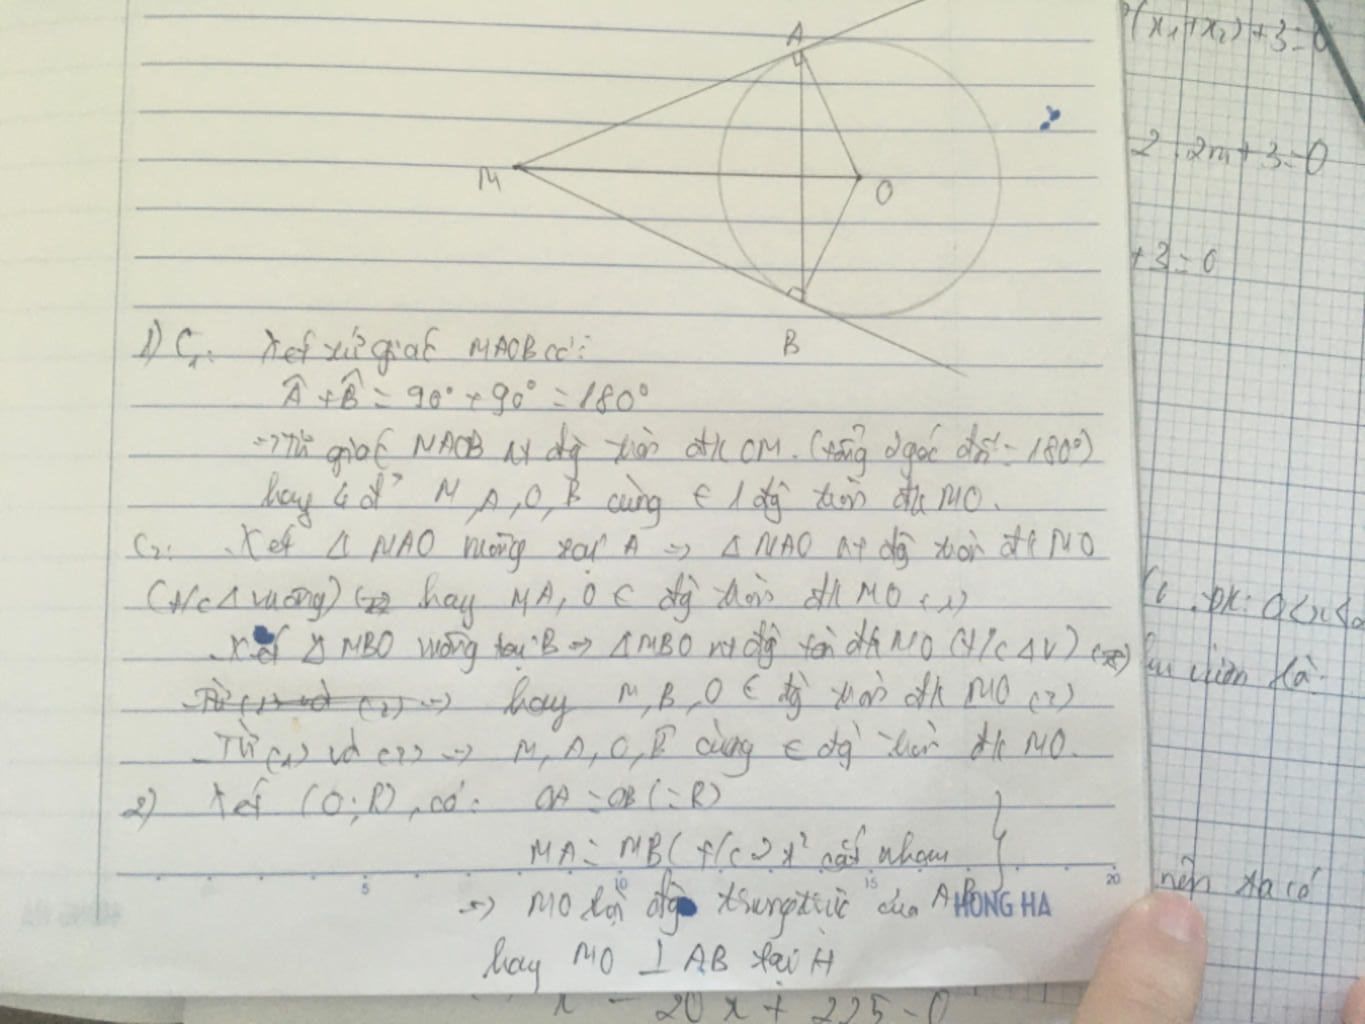 A
M
O
B
(x₁+x₂)+3=0
2 2m+3=0
+3=0
1) C₁: Xét tứ giác MAOB có:
Â+B̂=90°+90°=180°
→Tứ giác MAOB nt đg tròn đk OM. (tổng 2 góc đối=180°)
hay 4 đ' M,A,O,B cùng ∈ 1 đg tròn đk MO.
C₂: Xét Δ MAO vuông tại A → Δ MAO nt đg tròn đk MO
(t/c Δ vuông) hay MA,O ∈ đg tròn đk MO (1)
Xét Δ MBO vuông tại B → ΔMBO nt đg tròn đk MO (t/c ΔV)
Từ (1) và (2) → hay M,B,O ∈ đg tròn đk MO (2)
Từ (1) và (2) → M,A,O,B cùng ∈ đg tròn đk MO.
2) Xét (O;R), có: OA=OB(=R)
MA=MB( t/c 2 t² cắt nhau
→ MO là đg trung trực của AB
hay MO ⊥ AB tại H
5 10 15 20
HONG HA
ĐK: 0<x<
là:
nên ta có
x - 20x + 225=0